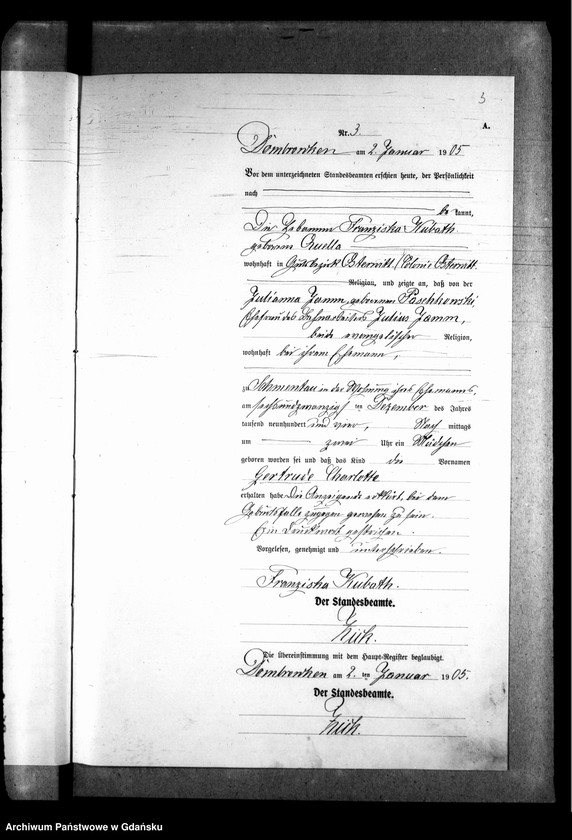 3
A.
Nr. 3
Dombrowken am 2. Januar 1905
Vor dem unterzeichneten Standesbeamten erschien heute, der Persönlichkeit
nach
be kannt,
Die Hebamme Franziska Kubath
geborene Quella
wohnhaft in Gutsbezirk Osterwitt (Colonie Osterwitt
Religion, und zeigte an, daß von der
Julianna Jamm, geborenen Paschkowski
Ehefrau des Julius Jamm,
beide evangelischer Religion,
wohnhaft bei ihrem Ehemann,
zu in der Wohnung ihres Ehemanns,
am sechsundzwanzigsten Dezember des Jahres
tausend neunhundert und vier, Nach mittags
um zwei Uhr ein Mädchen
geboren worden sei und daß das Kind die Vornamen
Gertrude Charlotte
erhalten habe Die Anzeigende erklärt, bei dem
Geburtsfalle zugegen gewesen zu sein.
Ein Druckwort gestrichen.
Vorgelesen, genehmigt und unterschrieben.
Franziska Kubath.
Der Standesbeamte.
Die Übereinstimmung mit dem Haupt-Register beglaubigt.
Dombrowken am 2. ten Januar 1905.
Der Standesbeamte.
Archiwum Państwowe w Gdańsku